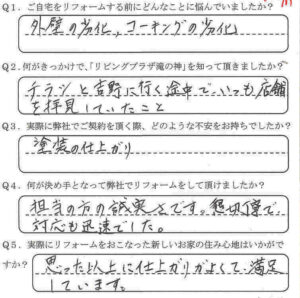 Q1. ご自宅をリフォームする前にどんなことに悩んでいましたか?
外壁の劣化、コーキングの劣化
Q2.何がきっかけで、「リビングプラザ滝の神」を知って頂きましたか?
チラシと吉野に行く途中で、いつも店舗
を拝見していたこと
Q3. 実際に弊社でご契約を頂く際、どのような不安をお持ちでしたか?
塗装の仕上がり
Q4. 何が決め手となって弊社でリフォームをして頂けましたか?
担当の方の誠実さです。懇切丁寧で
対応も迅速でした。
Q5. 実際にリフォームをおこなった新しいお家の住み心地はいかがで
すか?
思った以上に仕上がりがよくて、満足
しています。